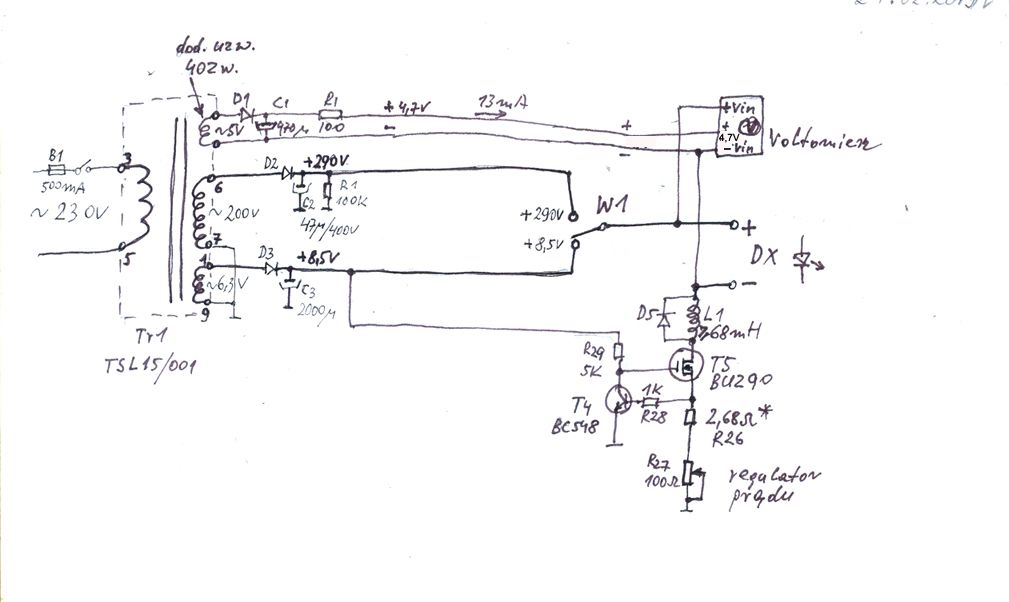 dod. uzw.
40zw.
D1
C1
R1
~5V
470µ
100
+ 4,7V
-
13mA
+
-
+Vin
+
4,7V
V
-Vin
Voltomierz
B1
500mA
~ 230V
3
5
6
7
1
9
~200V
~6,3V
D2
+290V
C2
R1
100K
47µ/400V
D3
+8,5V
C3
2000µ
+290V
+8,5V
W1
+
-
DX
Tr1
TSL15/001
D5
L1
R29
5K
T5
BUZ90
T4
BC548
1K
R28
2,68Ω*
R26
R27
100Ω
regulator
prądu